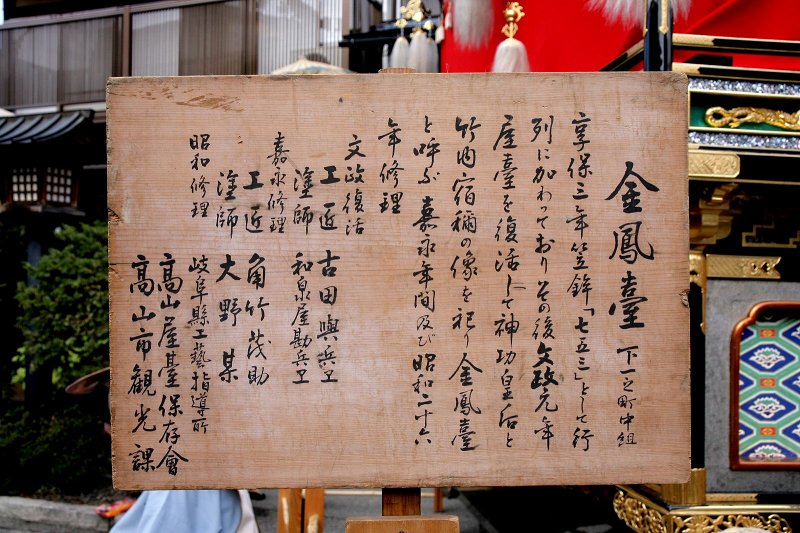 金鳳臺 下一之町中組
享保三年笠鉾「七五三」として行
列に加わっておりその後文政元年
屋臺を復活して神功皇后と
竹内宿禰の像を祀り金鳳臺
と呼ぶ嘉永年間及び昭和二十六
年修理
文政復活
工匠 古田與兵卫
塗師 和泉屋勘兵卫
嘉永修理
工匠 角竹茂助
塗師 大野某
昭和修理
岐阜縣工藝指導所
高山屋臺保存會
高山市観光課